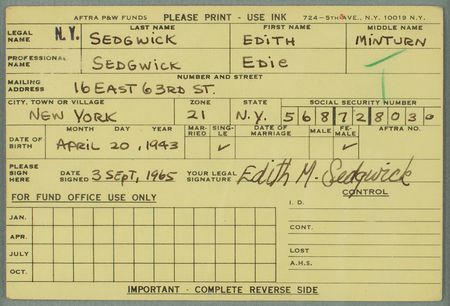 AFTRA P&W FUNDS PLEASE PRINT - USE INK 724-5TH AVE., N.Y. 10019 N.Y.
LEGAL NAME N.Y. LAST NAME FIRST NAME MIDDLE NAME
SEDGWICK EDITH MINTURN
PROFESSIONAL NAME SEDGWICK EDIE
MAILING ADDRESS NUMBER AND STREET
16 EAST 63RD ST.
CITY, TOWN OR VILLAGE ZONE STATE SOCIAL SECURITY NUMBER
NEW YORK 21 N.Y. 568728030
DATE OF BIRTH MONTH DAY YEAR MARRIED SINGLE DATE OF MARRIAGE MALE FEMALE AFTRA NO.
APRIL 20, 1943 ✓ ✓
PLEASE SIGN HERE DATE SIGNED 3 SEPT, 1965 YOUR LEGAL SIGNATURE Edith M. Sedgwick
CONTROL
FOR FUND OFFICE USE ONLY I.D.
JAN.
APR. CONT.
JULY LOST
OCT. A.H.S.
IMPORTANT - COMPLETE REVERSE SIDE